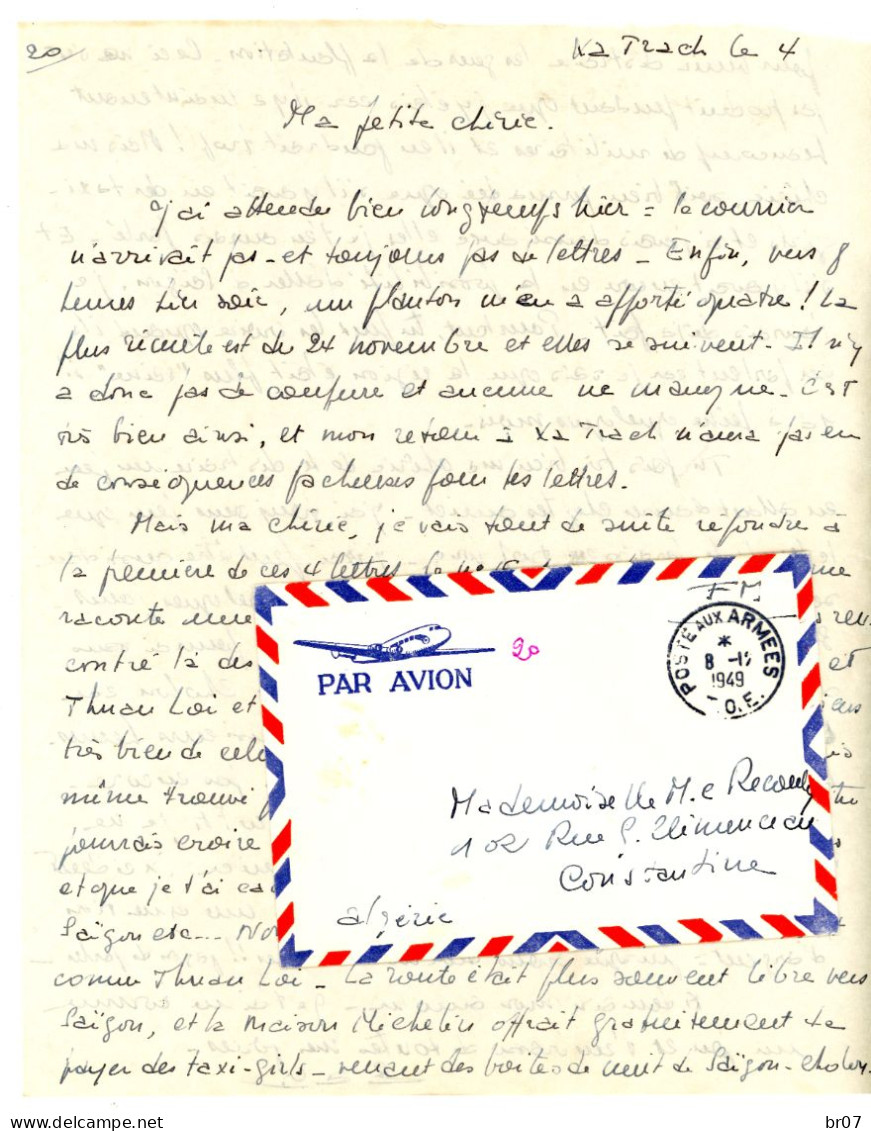 20
Xa Trach le 4
Ma petite chérie.
J'ai attendu bien longtemps hier = le courrier
n'arrivait pas - et toujours pas de lettres - Enfin, vers 8
heures hier soir, un planton m'en a apporté quatre ! La
plus récente est du 24 novembre et elles se suivent - Il n'y
a donc pas de coupure et aucune ne manque - C'est
très bien ainsi, et mon retour à Xa Trach n'aura pas eu
de conséquences facheuses pour tes lettres.
Mais ma chérie, je vais tout de suite répondre à
la première de ces 4 lettres - le
raconte une
contré là des
Thuan Loi et
très bien de
même trouvé
pourrais croire
et que je t'ai
Saïgon etc...
comme Thuan Loi - La route était plus souvent libre vers
Saïgon, et la maison Michelin offrait gratuitement
payer des taxi-girls - venant des boites de nuit de Saïgon-Cholon.
FM
20
PAR AVION
POSTE AUX ARMEES
*
8 -12
1949
T.O.E.
Mademoiselle M.
102 Rue G. Clémenceau
Constantine
Algérie
br07